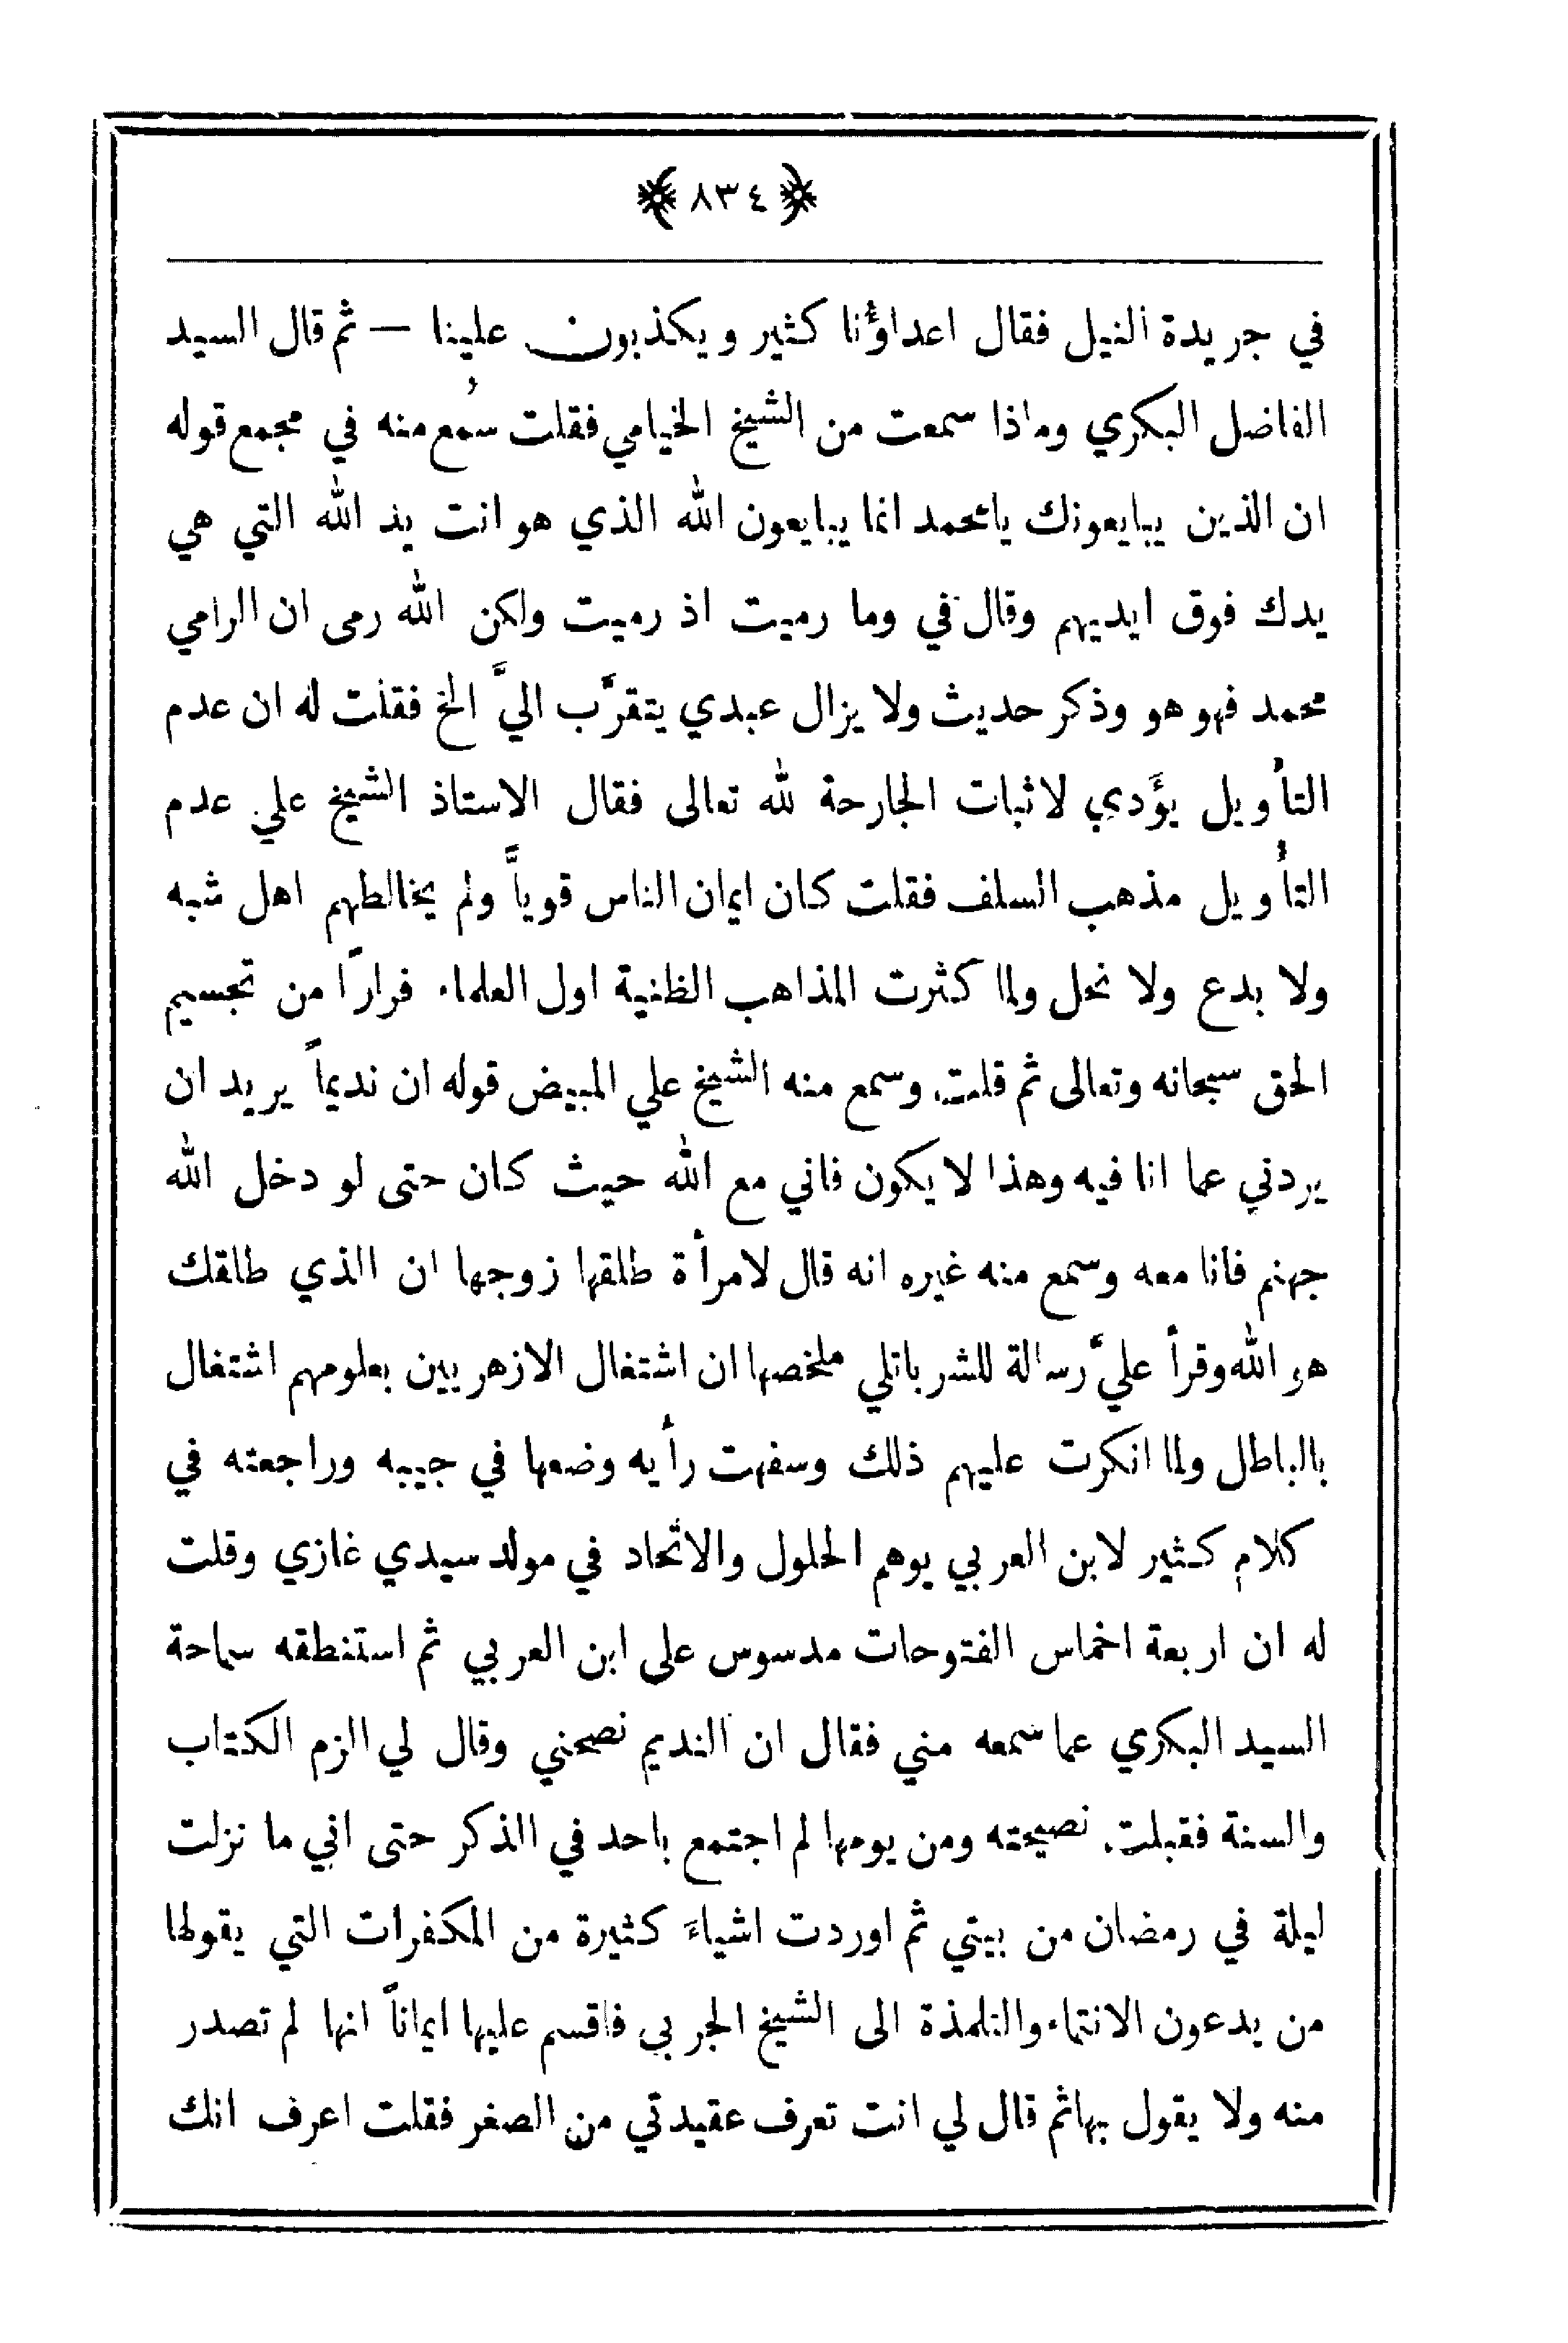 ﴿ ٨٣٤ ﴾
في جريدة النيل فقال اعداؤنا كثير ويكذبون علينا — ثم قال السيد
الفاضل البكري وماذا سمعت من الشيخ الخيامي فقلت سُمع منه في مجمع قوله
ان الذين يبايعونك يامحمد انما يبايعون الله الذي هو انت يد الله التي هي
يدك فوق ايديهم وقال في وما رميت اذ رميت ولكن الله رمى ان الرامي
محمد فهو هو وذكر حديث ولا يزال عبدي يتقرَّب اليَّ الخ فقلت له ان عدم
التأويل يؤَدي لاثبات الجارحة لله تعالى فقال الاستاذ الشيخ علي عدم
التأويل مذهب السلف فقلت كان ايمان الناس قوياً ولم يخالطهم اهل شبه
ولا بدع ولا نحل ولما كثرت المذاهب الظنية اول العلماء فرارًا من تجسيم
الحق سبحانه وتعالى ثم قلت وسمع منه الشيخ علي المبيض قوله ان نديماً يريد ان
يردني عما انا فيه وهذا لا يكون فاني مع الله حيث كان حتى لو دخل الله
جهنم فانا معه وسمع منه غيره انه قال لامرأة طلقها زوجها ان الذي طلقك
هو الله وقرأ عليَّ رسالة للشرباتلي ملخصها ان اشتغال الازهريين بعلومهم اشتغال
بالباطل ولما انكرت عليهم ذلك وسفهت رأيه وضعها في جيبه وراجعته في
كلام كثير لابن العربي يوهم الحلول والاتحاد في مولد سيدي غازي وقلت
له ان اربعة اخماس الفتوحات مدسوس على ابن العربي ثم استنطقه سماحة
السيد البكري عما سمعه مني فقال ان النديم نصحني وقال لي الزم الكتاب
والسنة فقبلت نصيحته ومن يومها لم اجتمع باحد في الذكر حتى اني ما نزلت
ليلة في رمضان من بيتي ثم اوردت اشياءَ كثيرة من المكفرات التي يقولها
من يدعون الانتماء والتلمذة الى الشيخ الجربي فاقسم عليها ايماناً انها لم تصدر
منه ولا يقول بها ثم قال لي انت تعرف عقيدتي من الصغر فقلت اعرف انك